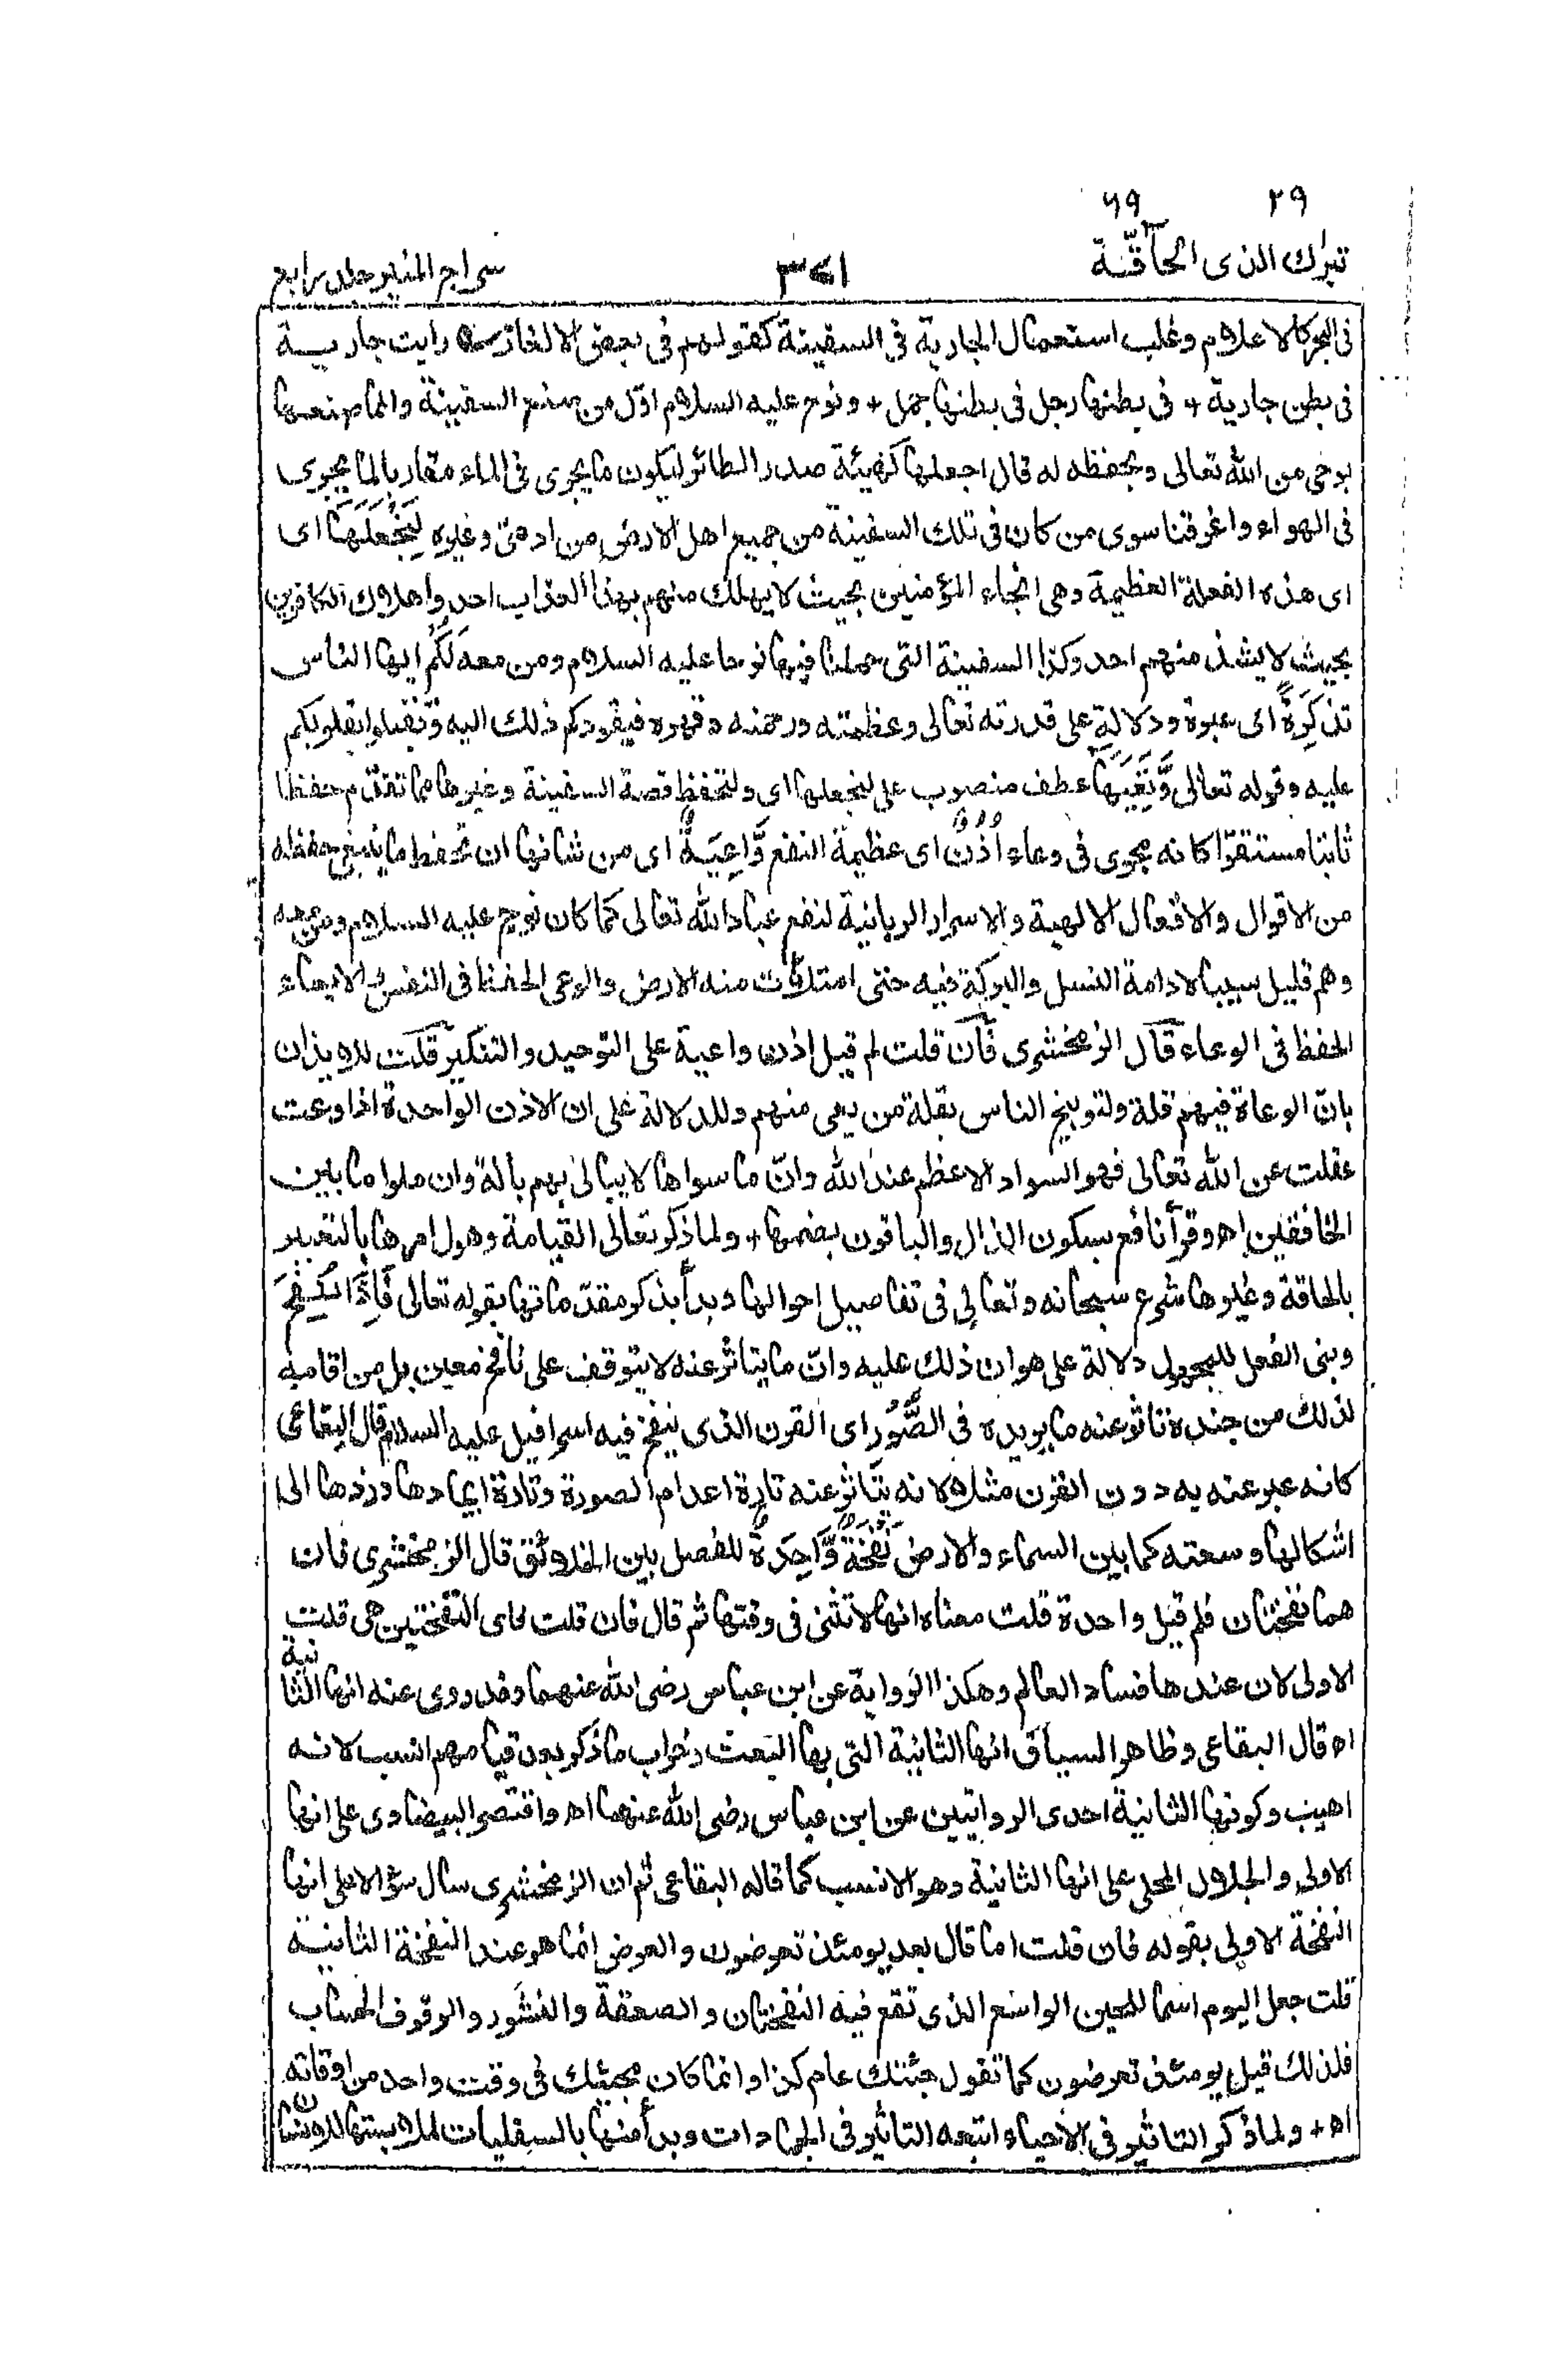 ٢٩
٦٩
تبرك الذى الحآقّة
٣٧١
سراج المنير جلد رابع
فى البحر كالاعلام وغلب استعمال الجارية فى السفينة كقولهم فى بعض الالغاز رايت جارية
فى بطن جارية + فى بطنها رجل فى بطنها جمل + ونوح عليه السلام اوّل من صنع السفينة وانما صنعها
بوحى من الله تعالى وبحفظه له قال اجعلها كهيئة صدر الطائر ليكون ما يجرى فى الماء مقاربا لما يجرى
فى الهواء واغرقنا سوى من كان فى تلك السفينة من جميع اهل الارض من ادمىّ وغيره لِنَجْعَلَهَا اى
اى هذه الفعلة العظيمة وهى انجاء المؤمنين بحيث لا يهلك منهم بهذا العذاب احد واهلاك الكافرين
بحيث لا يشذ منهم احد وكذا السفينة التى حملنا فيها نوحا عليه السلام ومن معه لَكُمْ ايها الناس
تَذْكِرَةً اى عبرة ودلالة على قدرته تعالى وعظمته ورحمته وقهره فيقودكم ذلك اليه وتقبلوا بقلوبكم
عليه وقوله تعالى وَّتَعِيَهَا عطف منصوب على لنجعلها اى ولتحفظ قصة السفينة وغيرها مما تقدّم حفظا
ثابتا مستقرّا كانه محوى فى وعاء اُذُنٌ اى عظيمة النفع وَّاعِيَةٌ اى من شانها ان تحفظ ما ينبغى حفظه
من الاقوال والافعال الالهية والاسرار الربانية لنفع عباد الله تعالى كما كان نوح عليه السلام ومن معه
وهم قليل سببا لادامة النسل والبركة فيه حتى امتلأت منه الارض والوعى الحفظ فى النفس والايعاء
الحفظ فى الوعاء قال الزمخشرى فان قلت لم قيل اذن واعية على التوحيد والتنكير قلت للايذان
بانّ الوعاة فيهم قلة ولتوبيخ الناس بقلة من يعى منهم وللدلالة على ان الاذن الواحدة اذا وعت
عقلت عن الله تعالى فهو السواد الاعظم عند الله وانّ ما سواها لا يبالى بهم بالة وان ملوا ما بين
الخافقين اه وقرأ نافع بسكون الذال والباقون بضمها + ولما ذكر تعالى القيامة وهول امرها بالتعبير
بالحاقة وغيرها شرع سبحانه وتعالى فى تفاصيل احوالها وبدأ بذكر مقدّماتها بقوله تعالى فَاِذَا نُفِخَ
وبنى الفعل للمجهول دلالة على هوان ذلك عليه وانّ ما يتاثر عنه لا يتوقف على نافخ معين بل من اقامه
لذلك من جنده تاثر عنه ما يريده فى الصُّوْرِ اى القرن الذى ينفخ فيه اسرافيل عليه السلام قال البقاعى
كانه عبر عنه به دون القرن مثلا لانه يتاثر عنه تارة اعدام الصورة وتارة ايجادها وردها الى
اشكالها وسعته كما بين السماء والارض نَفْخَةٌ وَّاحِدَةٌ للفصل بين الخلائق قال الزمخشرى فان
هما نفختان فلم قيل واحدة قلت معناه انها لا تثنى فى وقتها ثم قال فان قلت فاى النفختين هى قلت
الاولى لان عندها فساد العالم وهكذا الرواية عن ابن عباس رضى الله عنهما وقد روى عنه انها الثانية
اه قال البقاعى وظاهر السياق انها الثانية التى بها البعث وخراب ما ذكر بعد قيامهم انسب لانه
اهيب وكونها الثانية احدى الروايتين عن ابن عباس رضى الله عنهما اه واقتصر البيضاوى على انها
الاولى والجلال المحلى على انها الثانية وهو الانسب كما قاله البقاعى ثم ان الزمخشرى سال سؤالا على انها
النفخة الاولى بقوله فان قلت اما قال بعد يومئذ تعرضون والعرض انما هو عند النفخة الثانية
قلت جعل اليوم اسما للحين الواسع الذى تقع فيه النفختان والصعقة والنشور والوقوف الحساب
فلذلك قيل يومئذ تعرضون كما تقول جئتك عام كذا وانما كان مجيئك فى وقت واحد من اوقاته
اه + ولما ذكر التاثير فى الاحياء اتبعه التاثير فى الجمادات وبدأ منها بالسفليات لملابستها للانسان